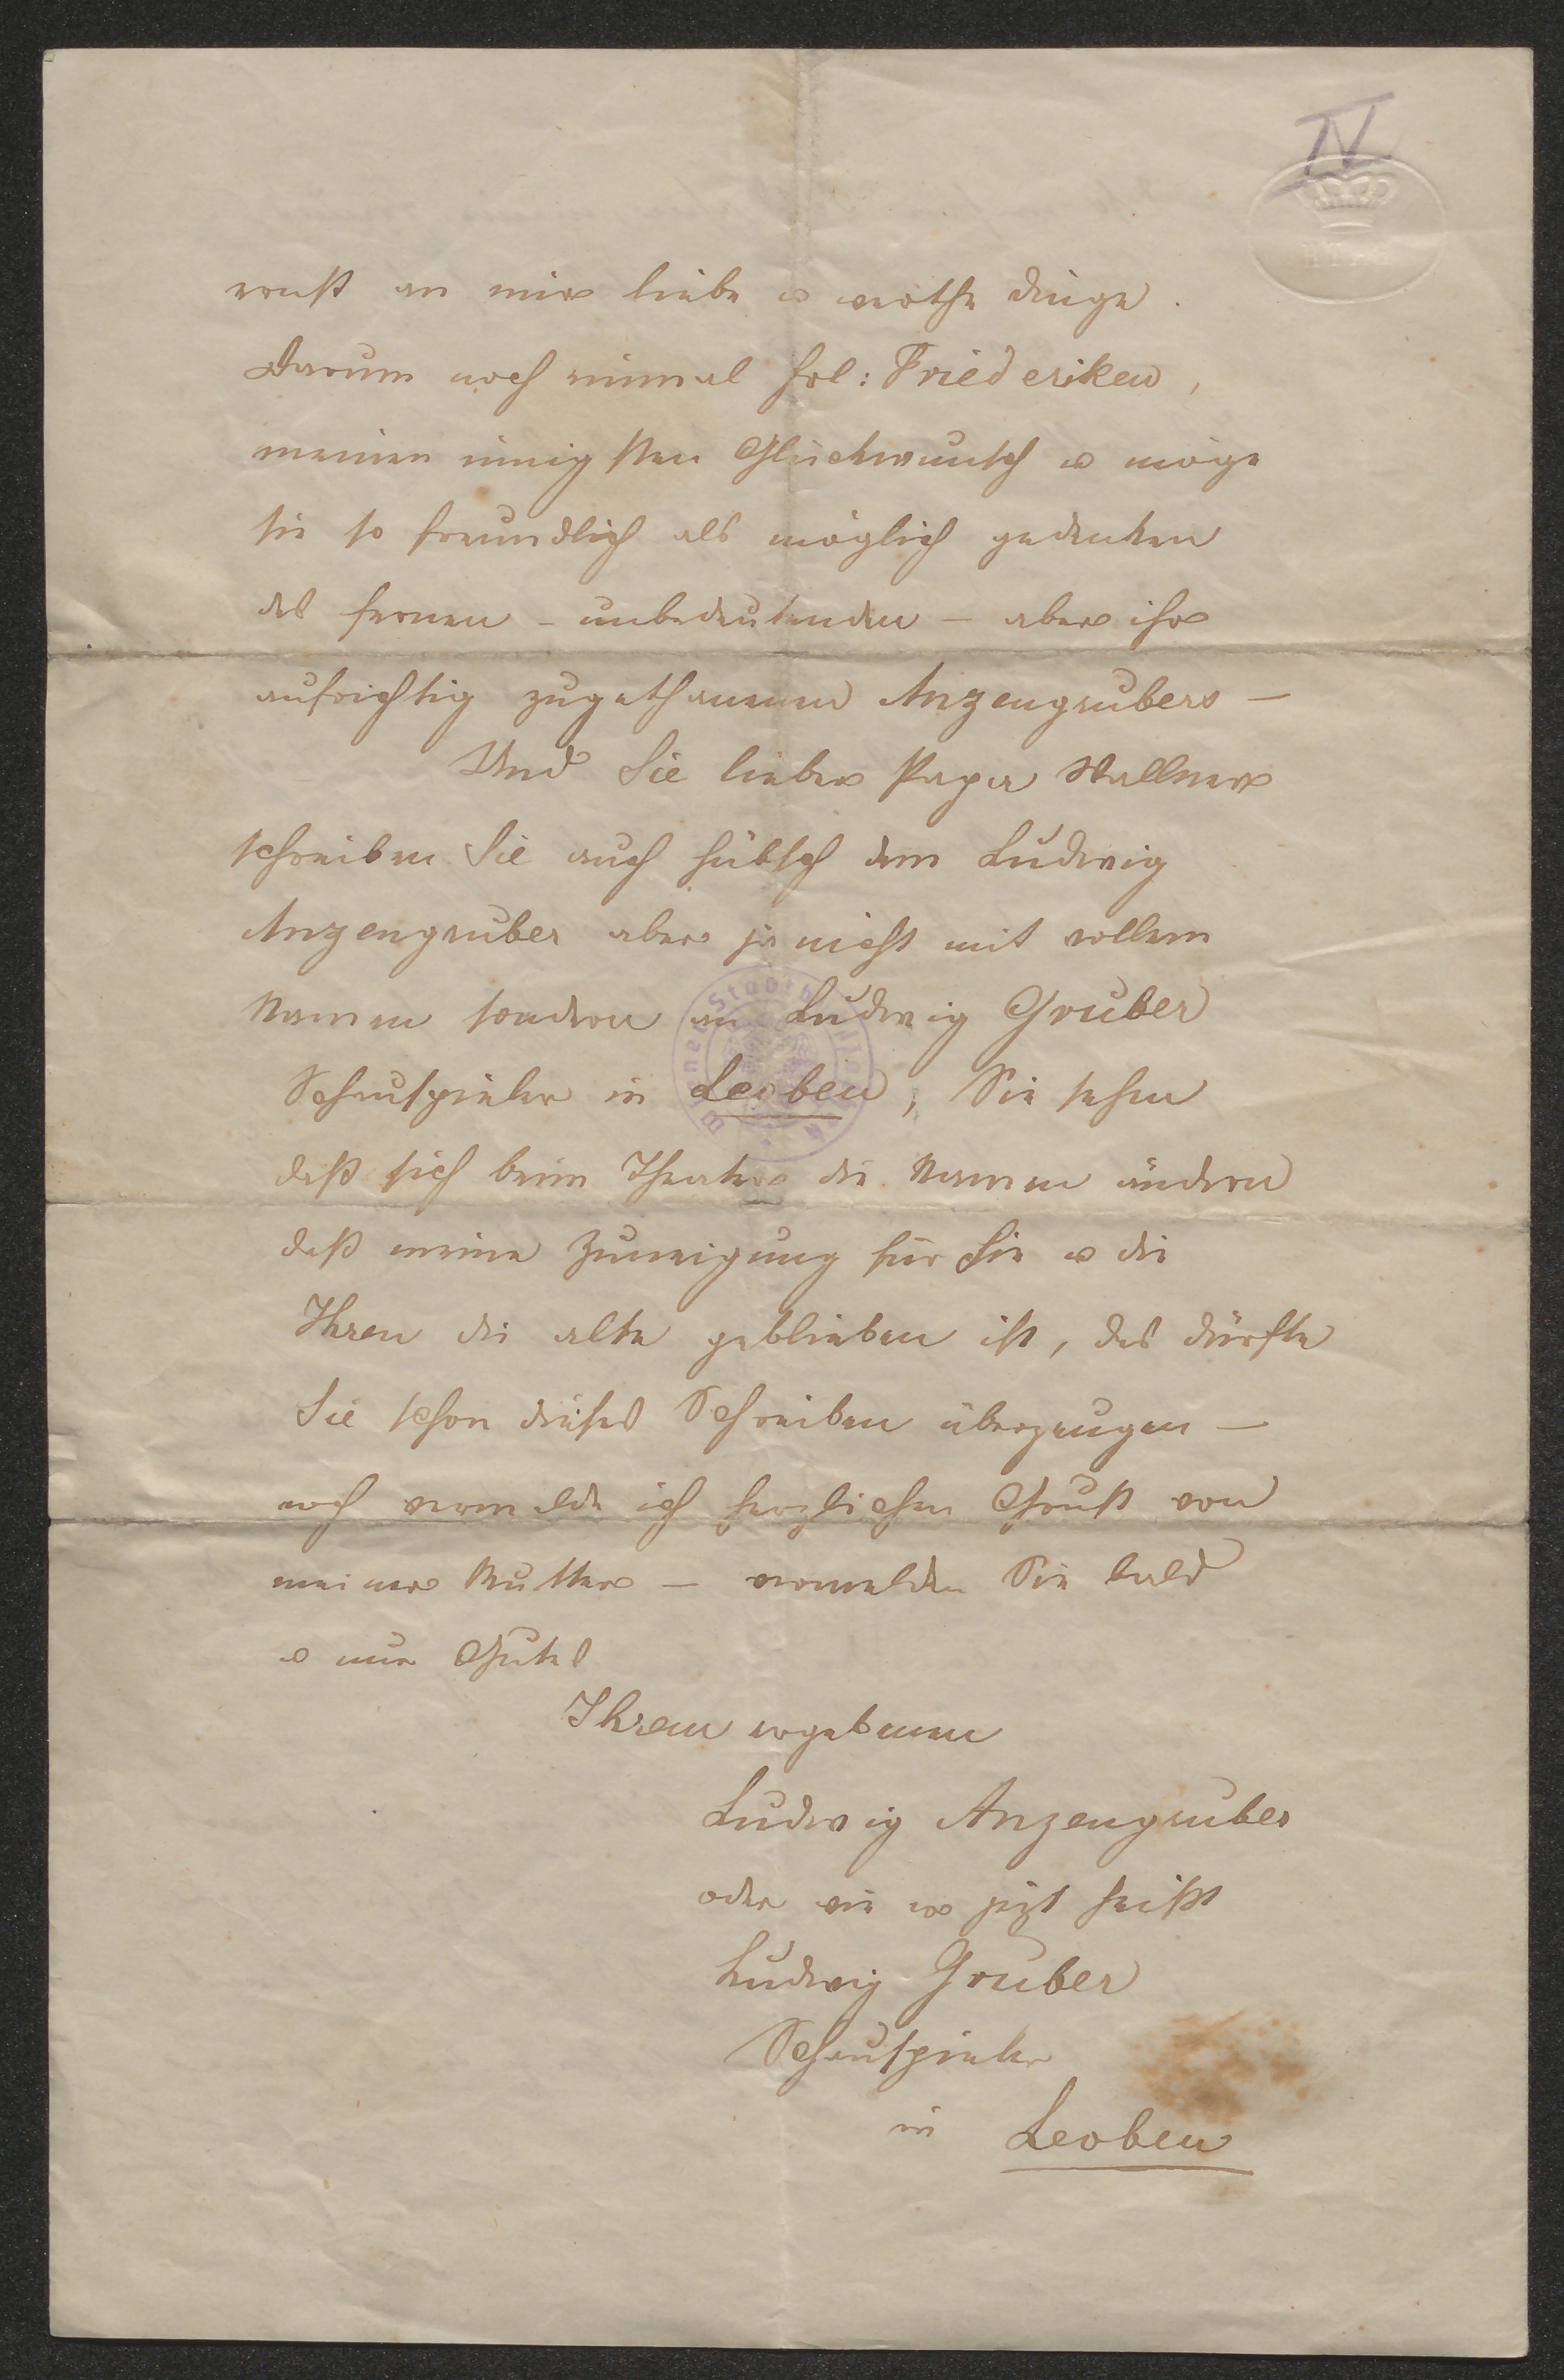 IV
ernst an mir liebe u werthe Dinge.
Darum noch einmal Frl: Friederiken,
meinen innigsten Glückwunsch u möge
sie so freundlich als möglich gedenken
des fernen – unbedeutenden – aber ihr
aufrichtig zugethanenen Anzengrubers –
Und Sie lieber Papa Wallner
schreiben Sie auch hübsch dem Ludwig
Anzengruber aber ja nicht mit vollem
Namen sondern an Ludwig Gruber
Schauspieler in Leoben, Sie sehen
daß sich beim Theater die Namen ändern
daß meine Zuneigung für Sie u die
Ihren die alte geblieben ist, das dürfte
Sie schon dieses Schreiben überzeugen –
noch vermelde ich herzlichen Gruß von
meiner Mutter – vermelden Sie bald
u nur Gutes
Ihrem ergebenen
Ludwig Anzengruber
oder wie er jezt heißt
Ludwig Gruber
Schauspieler
in Leoben